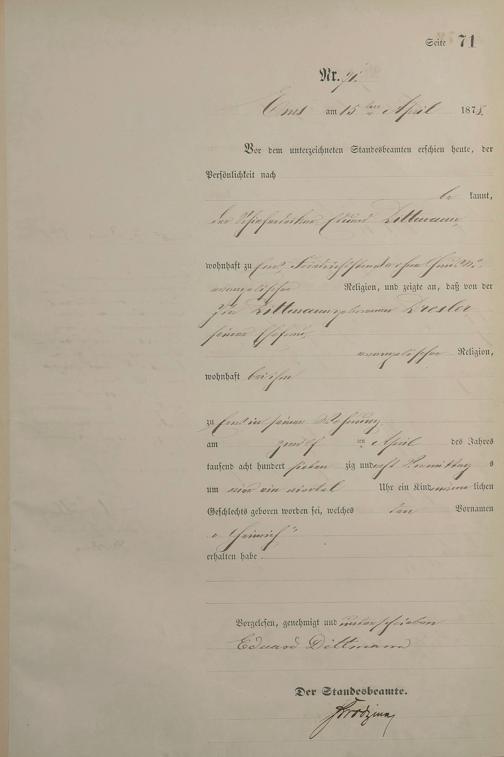 Seite 71
Nr. 71.
Ems am 15ten April 1875.
Vor dem unterzeichneten Standesbeamten erschien heute, der
Persönlichkeit nach
be kannt,
der Eduard Dittmann,
wohnhaft zu Ems,
evangelischer Religion, und zeigte an, daß von der
Dittmann geborenen Drosler,
seiner Ehefrau,
evangelischer Religion,
wohnhaft bei ihm
zu Ems in seiner Wohnung
am zwölf ten April des Jahres
tausend acht hundert sieben zig und Vormittags
um ein viertel Uhr ein Kind männ lichen
Geschlechts geboren worden sei, welches den Vornamen
„Heinrich“
erhalten habe.
Vorgelesen, genehmigt und unterschrieben
Eduard Dittmann
Der Standesbeamte.